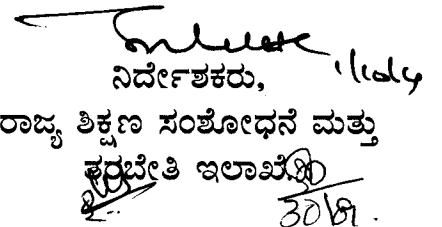 ನಿರ್ದೇಶಕರು,
ರಾಜ್ಯ ಶಿಕ್ಷಣ ಸಂಶೋಧನೆ ಮತ್ತು
ತರಬೇತಿ ಇಲಾಖೆ